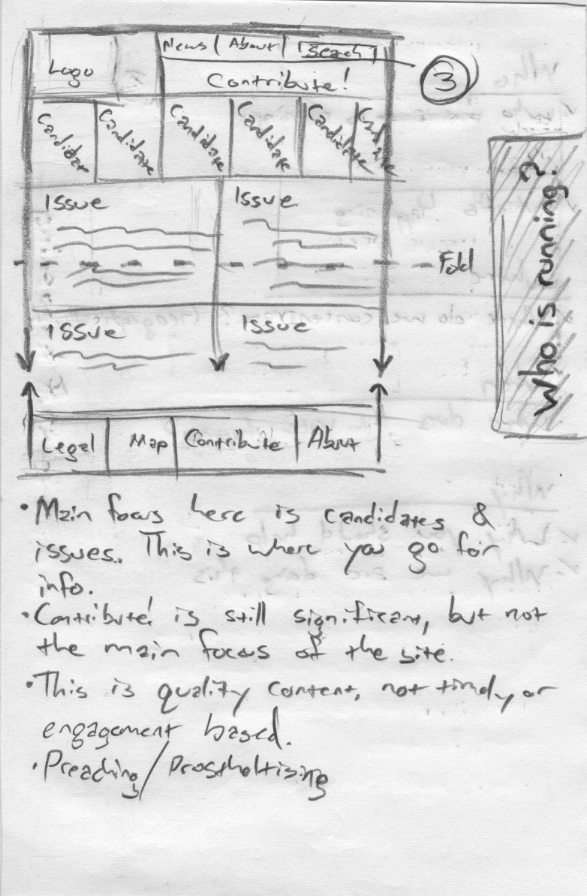 News | About | Search
Logo
Contribute!
3
Candidate Candidate Candidate Candidate Candidate Candidate
Issue Issue
Fold
Issue Issue
Legal | Map | Contribute | About
Who is running?
• Main focus here is candidates &
issues. This is where you go for
info.
• Contribute! is still significant, but not
the main focus of the site.
• This is quality content, not timely or
engagement based.
• Preaching/Prostheltising